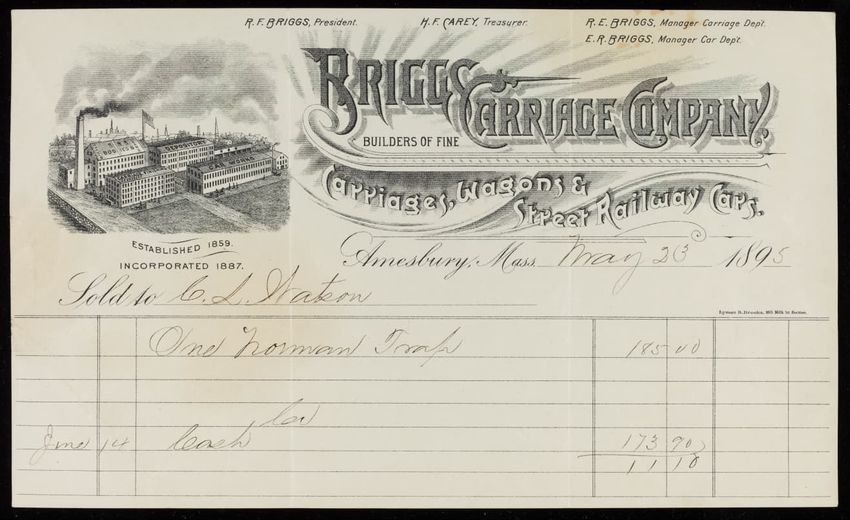 R.F. BRIGGS, President. H.F. CAREY, Treasurer. R.E. BRIGGS, Manager Carriage Dep't.
E.R. BRIGGS, Manager Car Dep't.
BRIGGS CARRIAGE COMPANY,
BUILDERS OF FINE
Carriages, Wagons &
Street Railway Cars.
ESTABLISHED 1859.
INCORPORATED 1887.
Amesbury, Mass. May 23 1895
Sold to C. L. Watson
One Norman Trap 185 00
Cr
June 14 Cash 173 90
11 10